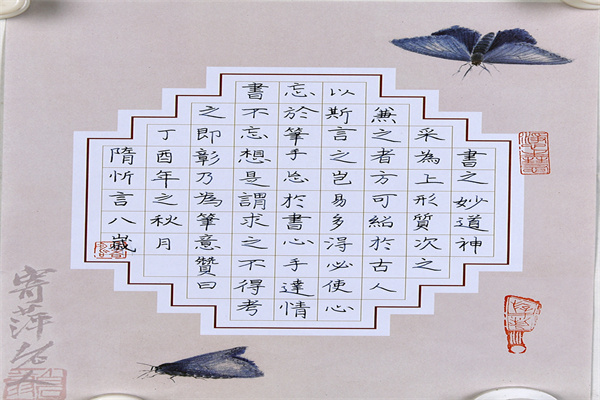 書之妙道神
采為上形質次之
兼之者方可紹於古人
以斯言之豈易多得必使心
忘於筆手忘於書心手達情
書不忘想是謂求之不得考
之即彰乃為筆意贊曰
丁酉年之秋月
隋忻言八歲
寄萍